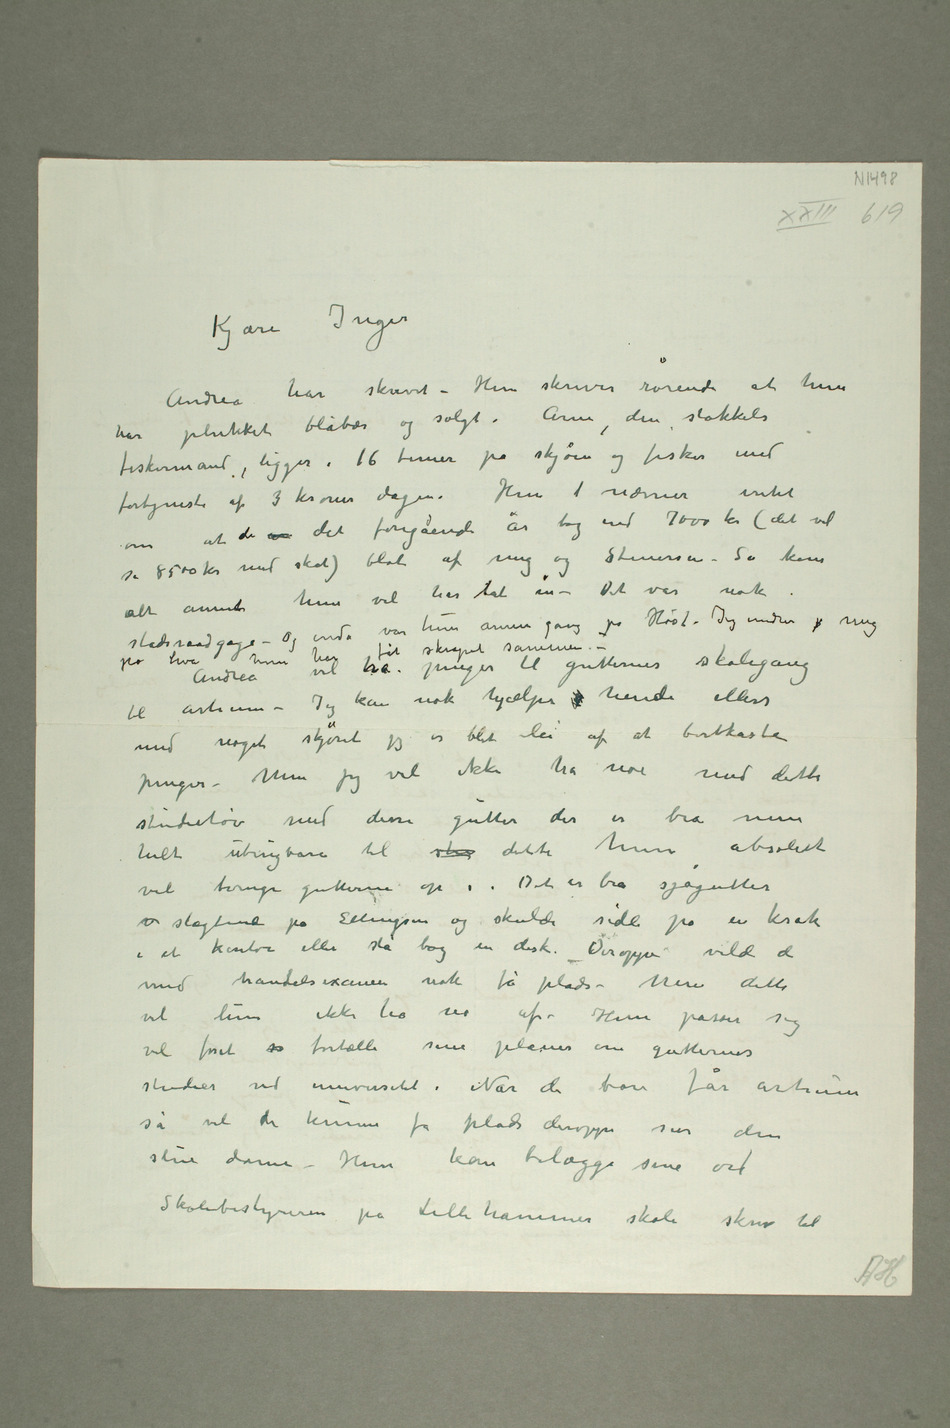 N1498
XXIII 619
Kjære Inger
Andrea har skrevet – Hun skriver rørende at hun
har plukket blåbær og solgt. Arne, den stakkels
fiskermand, ligger i 16 timer på skjøen og fisker med
fortjeneste af 3 kroner dagen. Hun nævner intet
om at de det foregående år tog ind 7000 kr (det vil
si 8500 kr med skat) blot af mig og Stenersen – Så kom
alt annet hun vel har tat in – Det var nok
stadsraadgage – Og enda var hun annen gang på Høst. Jeg undrer mig
på hva hun har fåt skrapet sammen. –
Andrea vil ha penger til gutternes skolegang
til artium – Jeg kan nok hjælpe hende ellers
med noget skjønt jeg er blet lei af at bortkaste
penger – Men jeg vil ikke ha noe med dette
studietøv med disse gutter der er bra men
helt ubrugbare til dette hun absolut
vil tvinge gutterne op i. Det er bra sjøgutter
slagtend på Ellingsen og skulde sidde på en krak
i et kontor eller stå bag en disk. Deroppe vilde de
med handelsexamen nok få plads – Men dette
vil hun ikke ha no af – Hun passer sig
vel for at fortælle sine planer om gutternes
studier ved universitet. Når de bare får artium
så vil de kunne få plads deroppe sier den
slue dame – Hun kan belægge sine ord
Skolebestyreren på Lillehammer skole skrev til
AH